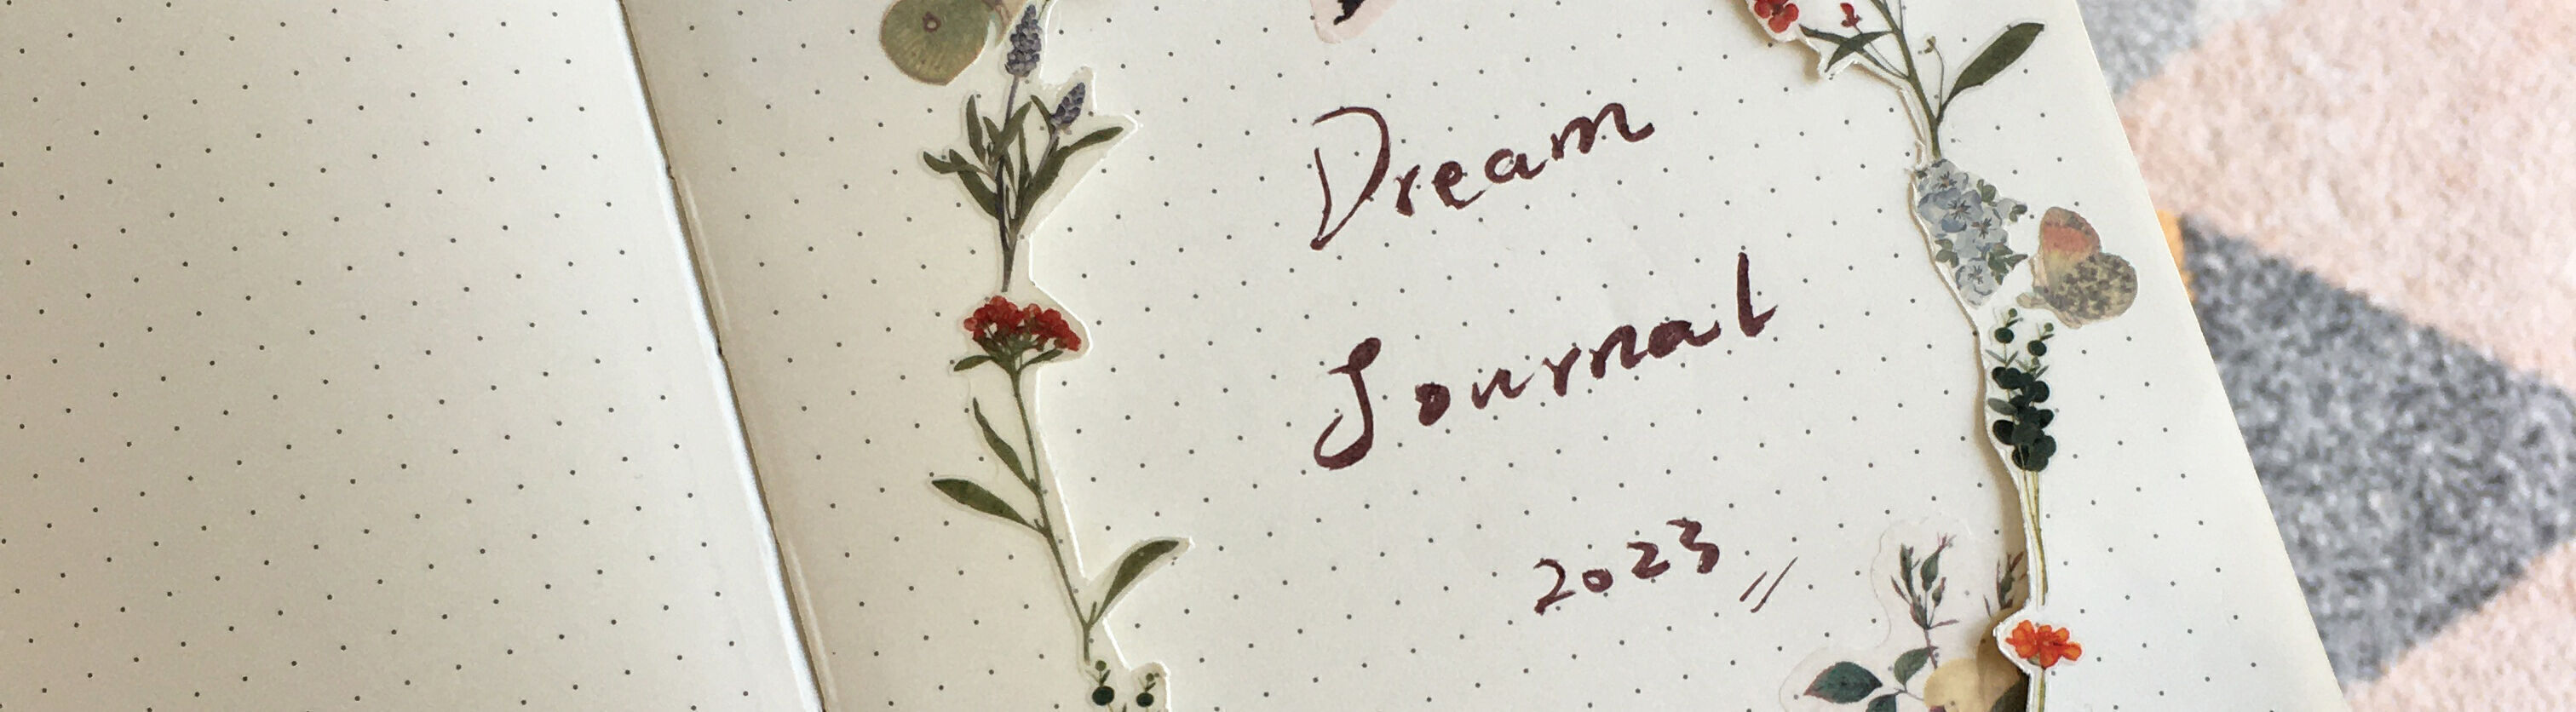 Dream
Journal
2023 //